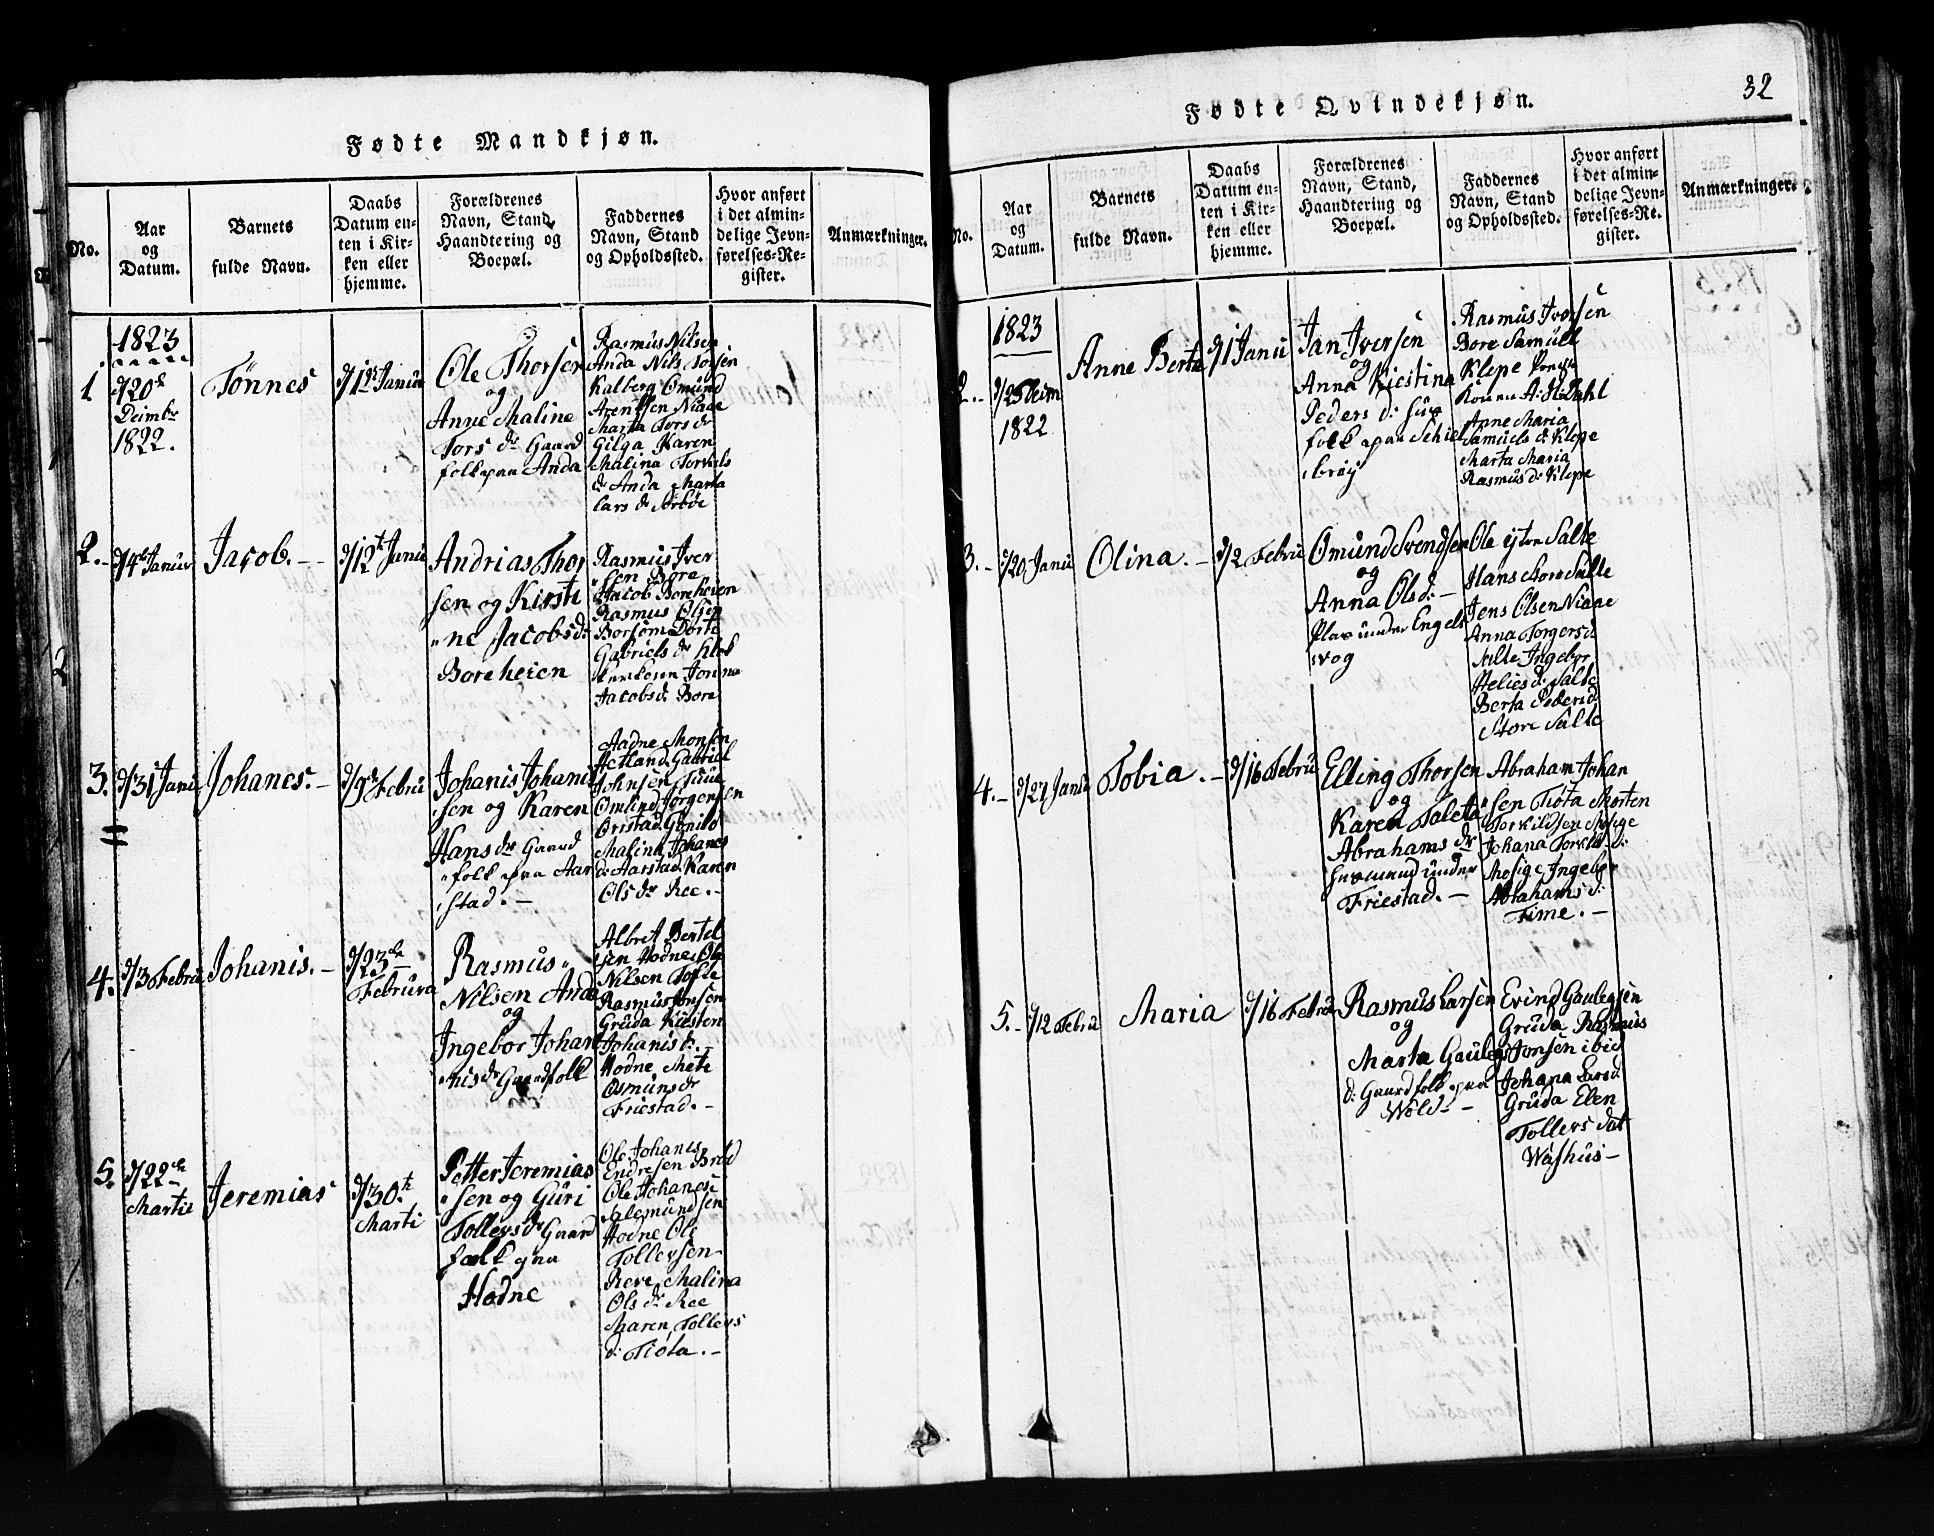 Fødte Mandkjøn.
No.
Aar
og
Datum.
Barnets
fulde Navn.
Daabs
Datum en-
ten i Kir-
ken eller
hjemme.
Forældrenes
Navn, Stand,
Haandtering og
Boepæl.
Faddernes
Navn, Stand
og Opholdssted.
Hvor anført
i det almin-
delige Jevn-
førelses-Re-
gister.
Anmærkninger.
1823
1
d/20
Deimbr
1822.
Tønnes
d/12 Janur
Ole Thorsen
og
Anne Maline
Tors dr Gaard
folk paa Anda
Rasmus Nilsen
Anda Nils Torsen
Kalberg Omund
Arentsen Niaae
Marta Tors dr
Gilga Karen
Malina Torkels
dr Anda Marta
Lars dr Sørbøe
2.-
d/4 Janur
Jacob.--
d/12t Janu
Andrias Thor
sen og Kirsti
"ne Jacobsd:
Boreheien
Rasmus Iver
sen Bore
Jacob Boreheien
Rasmus Olsen
Borsom Dorte
Gabriels dr
Jacobsd: Bore
3.
d/31 Janu
Johanes.-
d/9 Febru
Johanis Johanis
sen og Karen
Hans dr Gaard
"folk paa Aar
stad.-
Aadne Monsen
Hetland Gabriel
Johnsen
Omund Jørgensen
Oristad
Malina Johanes
d: Aarstad Karen
Ols dr Ree.-
4.
d/3 Febru
Johanis.-
d/23de
Februa
Rasmus
Nilsen Anda
og
Ingebor Johan
"nis dr Gaardfolk
Albret Bertel
sen Hodne Ole
Nilsen Tofte
Rasmus Jonsen
Gruda Kiesten
Johanis d:-
Hodne Mete
Osmuns dr
Friestad.-
5.
d/22de
Martii
Jeremias
d/30t
Marti
Petter Jeremias
"sen og Guri
Tollevs dr Gaard
folk paa
Hodne
Ole Johanes
Endresen
Ole Johanes
Salemundsen
Hodne Ole
Tollevsen
Reve Malina
Ols dr Ree
Maren Tollevs
d: Tiøta.-
32
Fødte Qvindekjøn.
No.
Aar
og
Datum.
Barnets
fulde Navn.
Daabs
Datum en-
ten i Kir-
ken eller
hjemme.
Forældrenes
Navn, Stand,
Haandtering og
Boepæl.
Faddernes
Navn, Stand
og Opholdssted.
Hvor anført
i det almin-
delige Jevn-
førelses-Re-
gister.
Anmærkninger.
1823
2.-
1822
Anne Berta
d/1 Janu
Jan Iversen
og
Anna Kiestina
Peders d: Huus
folk paa Schiel
brøj
Rasmus Iversen
Bore Samuel
Klepe
Anne Maria
Samuels d: Klepe
Marta Maria
Rasmus d: Klepe
3.-
d/20 Janu
Olina.-
d/2 Febru
Omund Svendsen
og
Anna Ols d:-
Plas under Engels
vog
Ole ytre Salte
Hans Store Salte
Jens Olsen Niaae
Anna Torgers d:
Salte Ingebor
Helies d: Salte
Berta Peders d:
Store Salte
4.-
d/27 Janu
Tobia.-
d/16 Febru
Elling Thorsen
og
Karen Taleta
Abrahams dr
Huusmand under
Friestad.-
Abraham Johan
"sen Tiøta Morten
Torkildsen Mosige
Johana Torkils d:
Mosige Ingebor
Abrahams d:
Time.-
5.-
d/12 Febru
Maria
d/16 Febru
Rasmus Larsen
og
Marta Gaulegs
d: Gaardfolk paa
Wold-
Evind Gaulegsen
Gruda Rasmus
Jonsen ibid
Johana Larsd
Gruda Elen
Tollevs dat
Washus-